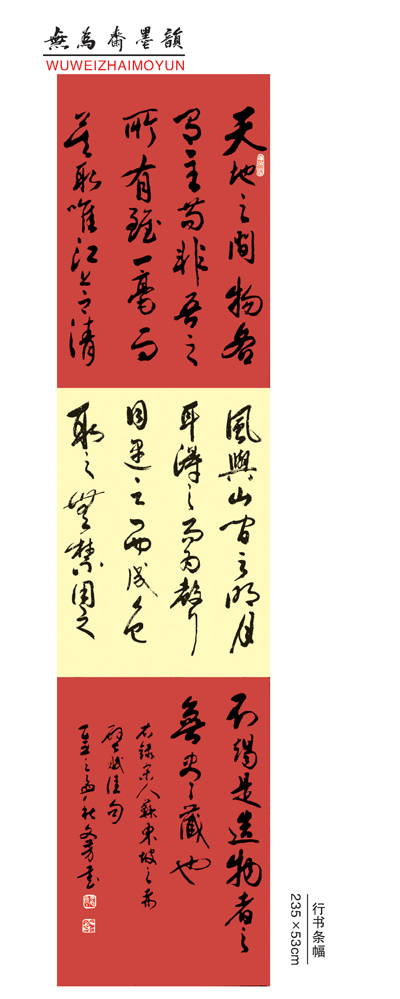 無為齋墨韻
WUWEIZHAIMOYUN
天地之間物各
有主苟非吾之
所有雖一毫而
莫取唯江上之清
風與山間之明月
耳得之而為聲
目遇之而成色
取之無禁用之
不竭是造物者之
無盡藏也
右錄宋人蘇東坡之赤
壁賦佳句
行书条幅
235×53cm